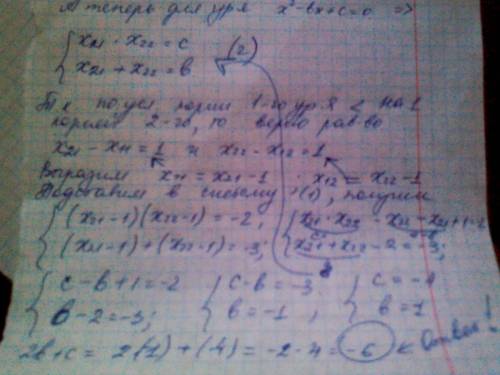 А теперь для ур-я x²-bx+c=0 =>
{ x₂₁ · x₂₂ = c
{ x₂₁ + x₂₂ = b (2)
Т.к по усл. корни 1-го ур-я < на 1
корней 2-го, то верно рав-во
x₂₁ - x₁₁ = 1 и x₂₂ - x₁₂ = 1
Выразим x₁₁ = x₂₁ - 1 x₁₂ = x₂₂ - 1
Подставим в систему (1), получим
{ (x₂₁-1)(x₂₂-1) = -2, { x₂₁·x₂₂ - x₂₂ - x₂₁ + 1 = -2
{ (x₂₁-1) + (x₂₂-1) = -3; { x₂₁ + x₂₂ - 2 = -3;
{ c - b + 1 = -2 { c - b = -3 { c = -4
{ b - 2 = -3; { b = -1 , { b = 1
2b + c = 2(1) + (-4) = -2 - 4 = -6 < Ответ!